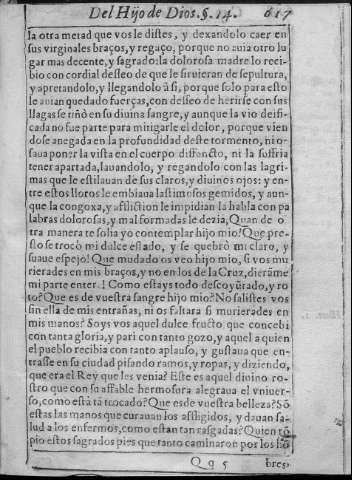 Del Hijo de Dios. §. 14. 617
la otra metad que vos le distes, y dexandolo caer en
sus virginales braços, y regaço, porque no auia otro lu
gar mas decente, y sagrado: la dolorosa madre lo reci-
bio con cordial desseo de que le siruieran de sepultura,
y apretandolo, y llegandolo à si, porque solo para esto
le auian quedado fuerças, con desseo de herirse con sus
llagas se tiñò en su diuina sangre, y aunque la vio deifi-
cada no fue parte para mitigarle el dolor, porque vien
dose anegada en la profundidad deste tormento, ni o-
saua poner la vista en el cuerpo diffuncto, ni la suffria
tener apartada, lauandolo, y regandolo con las lagri-
mas que le estilauan de sus claros, y diuinos ojos: y en-
tre estos lloros le embiaua lastimosos gemidos, y aun-
que la congoxa, y affliction le impidian la habla con pa
labras dolorosas, y mal formadas le dezia, Quan de o
tra manera te solia yo contemplar hijo mio? Que pre-
sto se trocò mi dulce estado, y se quebrò mi claro, y
suaue espejo! Que mudado os veo hijo mio, si vos mu
rierades en mis braços, y no en los de la Cruz, dierame
mi parte enter.! Como estays todo descoyũtado, y ro
to? Que es de vuestra sangre hijo mio? No salistes vos
sin ella de mis entrañas, ni os faltara si murierades en
mis manos? Soys vos aquel dulce fructo que concebi
con tanta gloria, y pari con tanto gozo, y aquel a quien
el pueblo recibia con tanto aplauso, y gustaua que en-
trasse en su ciudad pisando ramos, y ropas, y diziendo,
que era el Rey que les venia? Este es aquel diuino ro-
stro que con su affable hermosura alegraua el vniuer-
so, como està tã trocado? Que es de vuestra belleza? Sõ
estas las manos que curauan los affligidos, y dauan sa-
lud a los enfermos, como estan tan rasgadas? Quien rõ
pio estos sagrados pies que tanto caminaron por los hõ
Q q 5 bres,